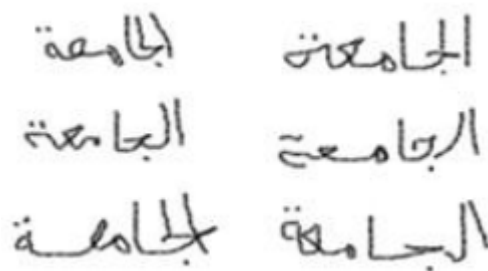 الجامعة الجامعة
الجامعة الجامعة
الجامعة الجامعة